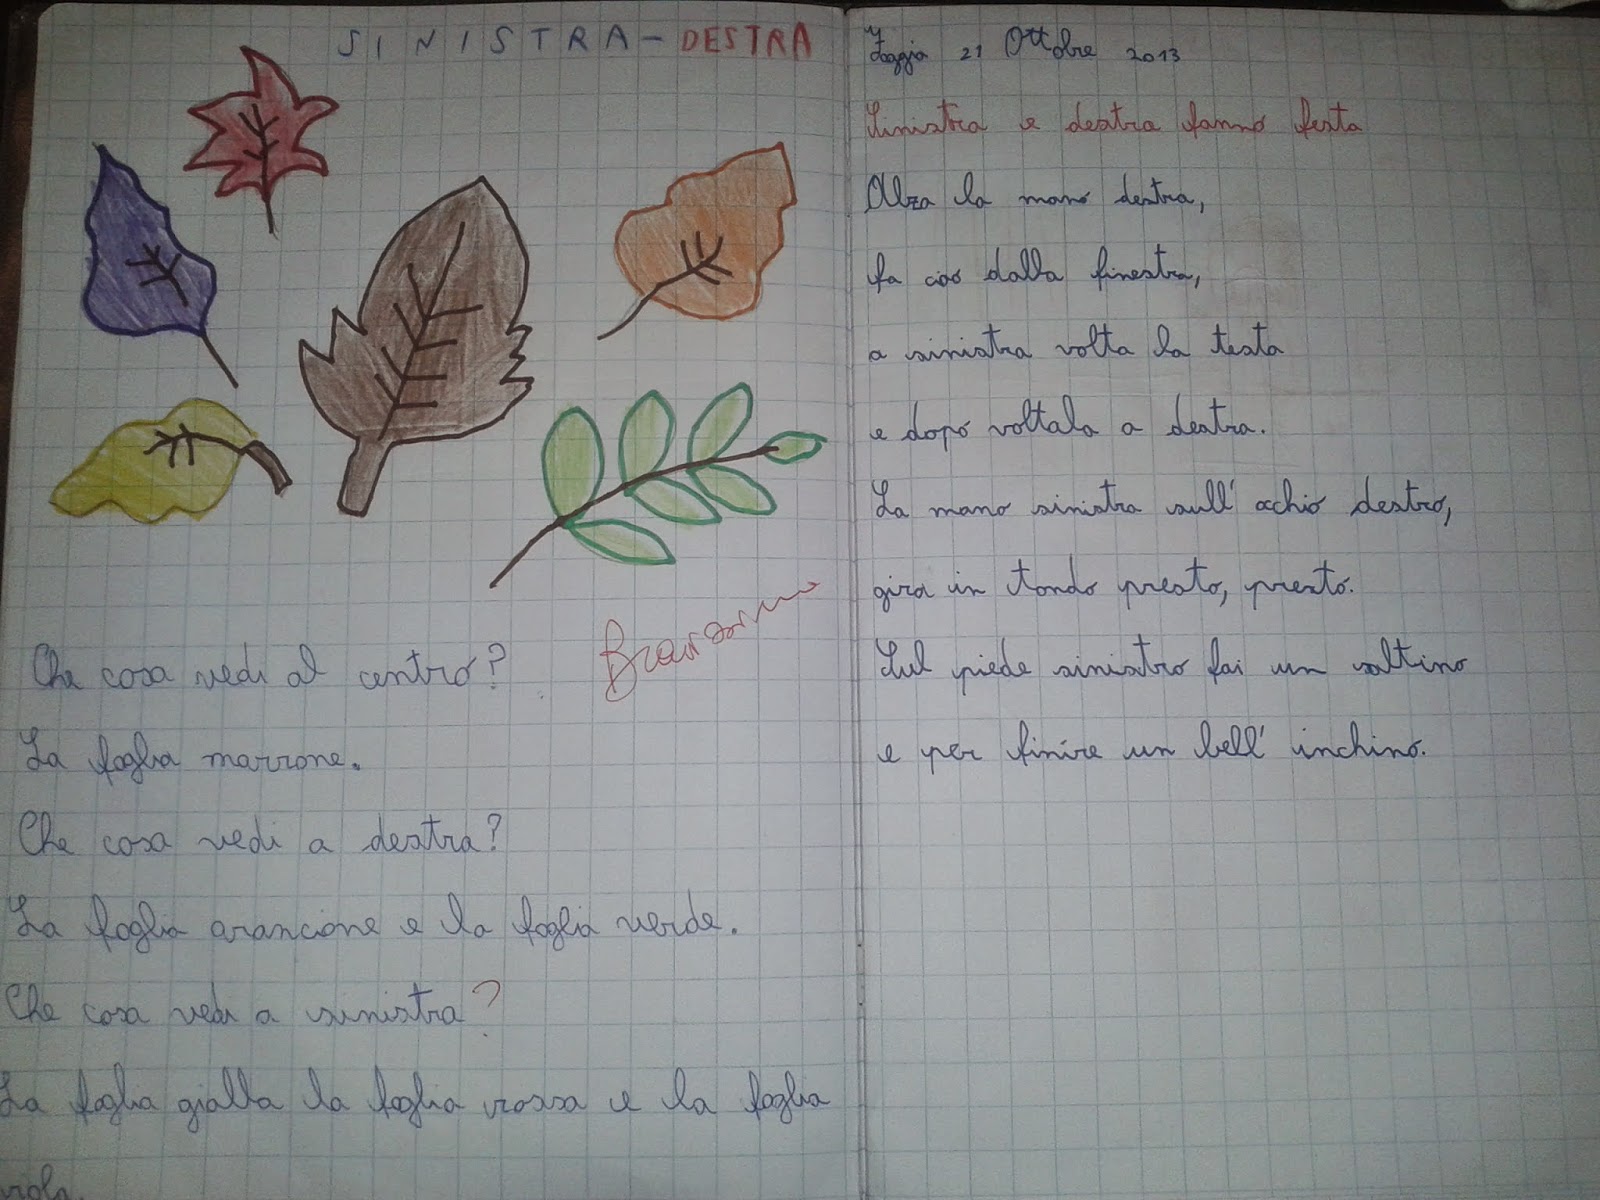 SINISTRA-DESTRA
Bravissimo
Che cosa vedi al centro?
La foglia marrone.
Che cosa vedi a destra?
La foglia arancione e la foglia verde.
Che cosa vedi a sinistra?
La foglia gialla la foglia rossa e la foglia
viola.
Foggia 21 Ottobre 2013
Sinistra e destra fanno festa
Alza la mano destra,
fa ciao dalla finestra,
a sinistra volta la testa
e dopo voltala a destra.
La mano sinistra sull'occhio destro,
gira in tondo presto, presto.
Sul piede sinistro fai un saltino
e per finire un bell'inchino.